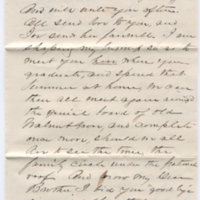 And will write you often.
All send love to you, and
for send his farewell. I am
shaping my so as to
meet you here when you
graduate, and spend that
Summer at home. We can
then all meet again around
the social board of old
Walnut Grove, and complete
once more should we all
live to see the time, the
family Circle under the paternal
roof. And now my Dear
Brother, I bid you "good bye